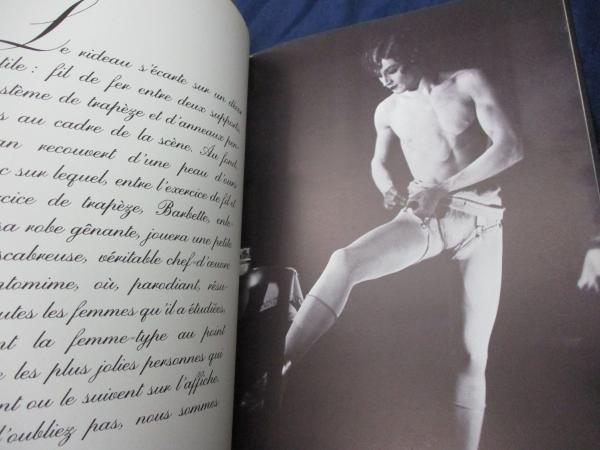 Le rideau s'écarte sur un
tile : fil de fer entre deux supports,
stème de trapèze et d'anneaux pen-
s au cadre de la scène. Au fond,
an recouvert d'une peau d'ours
c sur lequel, entre l'exercice de fil et
cice de trapèze, Barbette, enle-
sa robe gênante, jouera une petite
scabreuse, véritable chef-d'œuvre
ntomime, où, parodiant, résu-
utes les femmes qu'il a étudiées,
nt la femme-type au point
e les plus jolies personnes qui
nt ou le suivent sur l'affiche.
l'oubliez pas, nous sommes